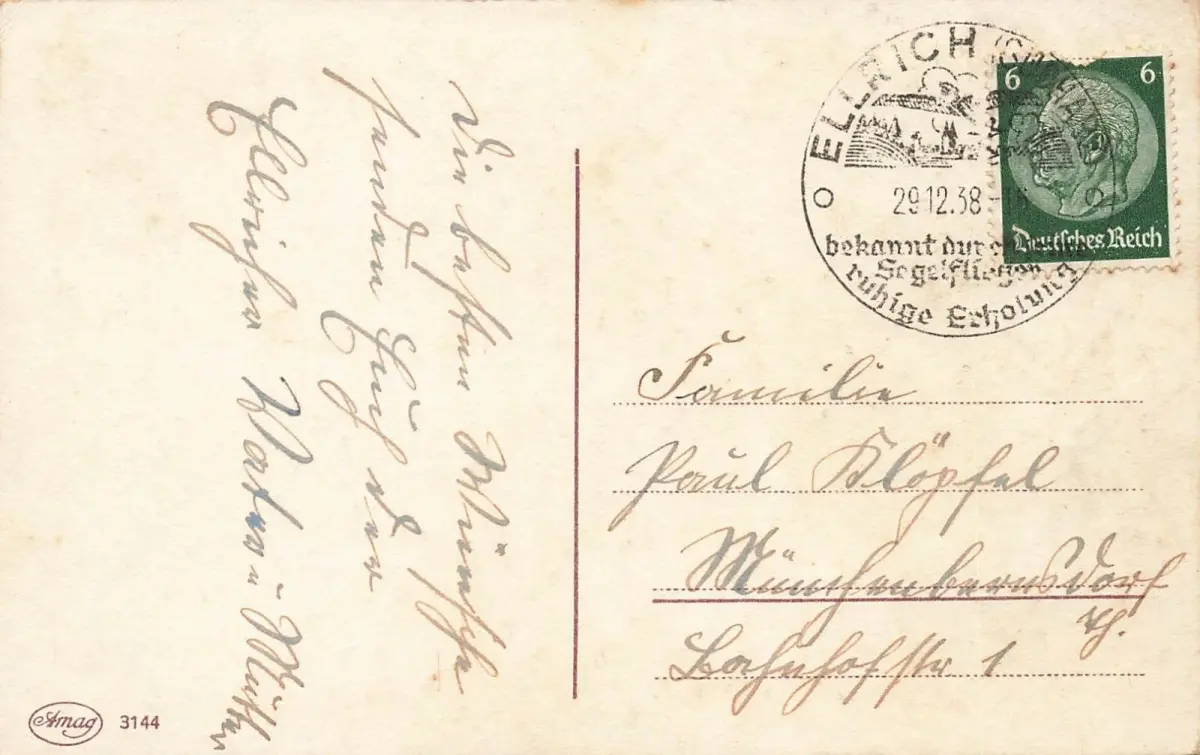 Die besten Wünsche
senden Euch der
Ellricher Vater u Mutter
ELLRICH
29.12.38
bekannt durch
Segelfliegen
ruhige Erholung
6 6
Deutsches Reich
Familie
Paul Klöpfel
Münchenbernsdorf
Th.
Bahnhofstr 1
Amag 3144